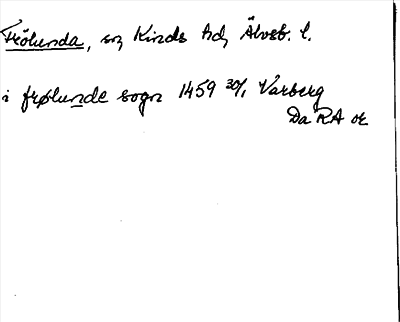 Frölunda, sn Kinds hd, Älvsb. l.
i frølunde sogn 1459 30/1 Varberg
Da RA or